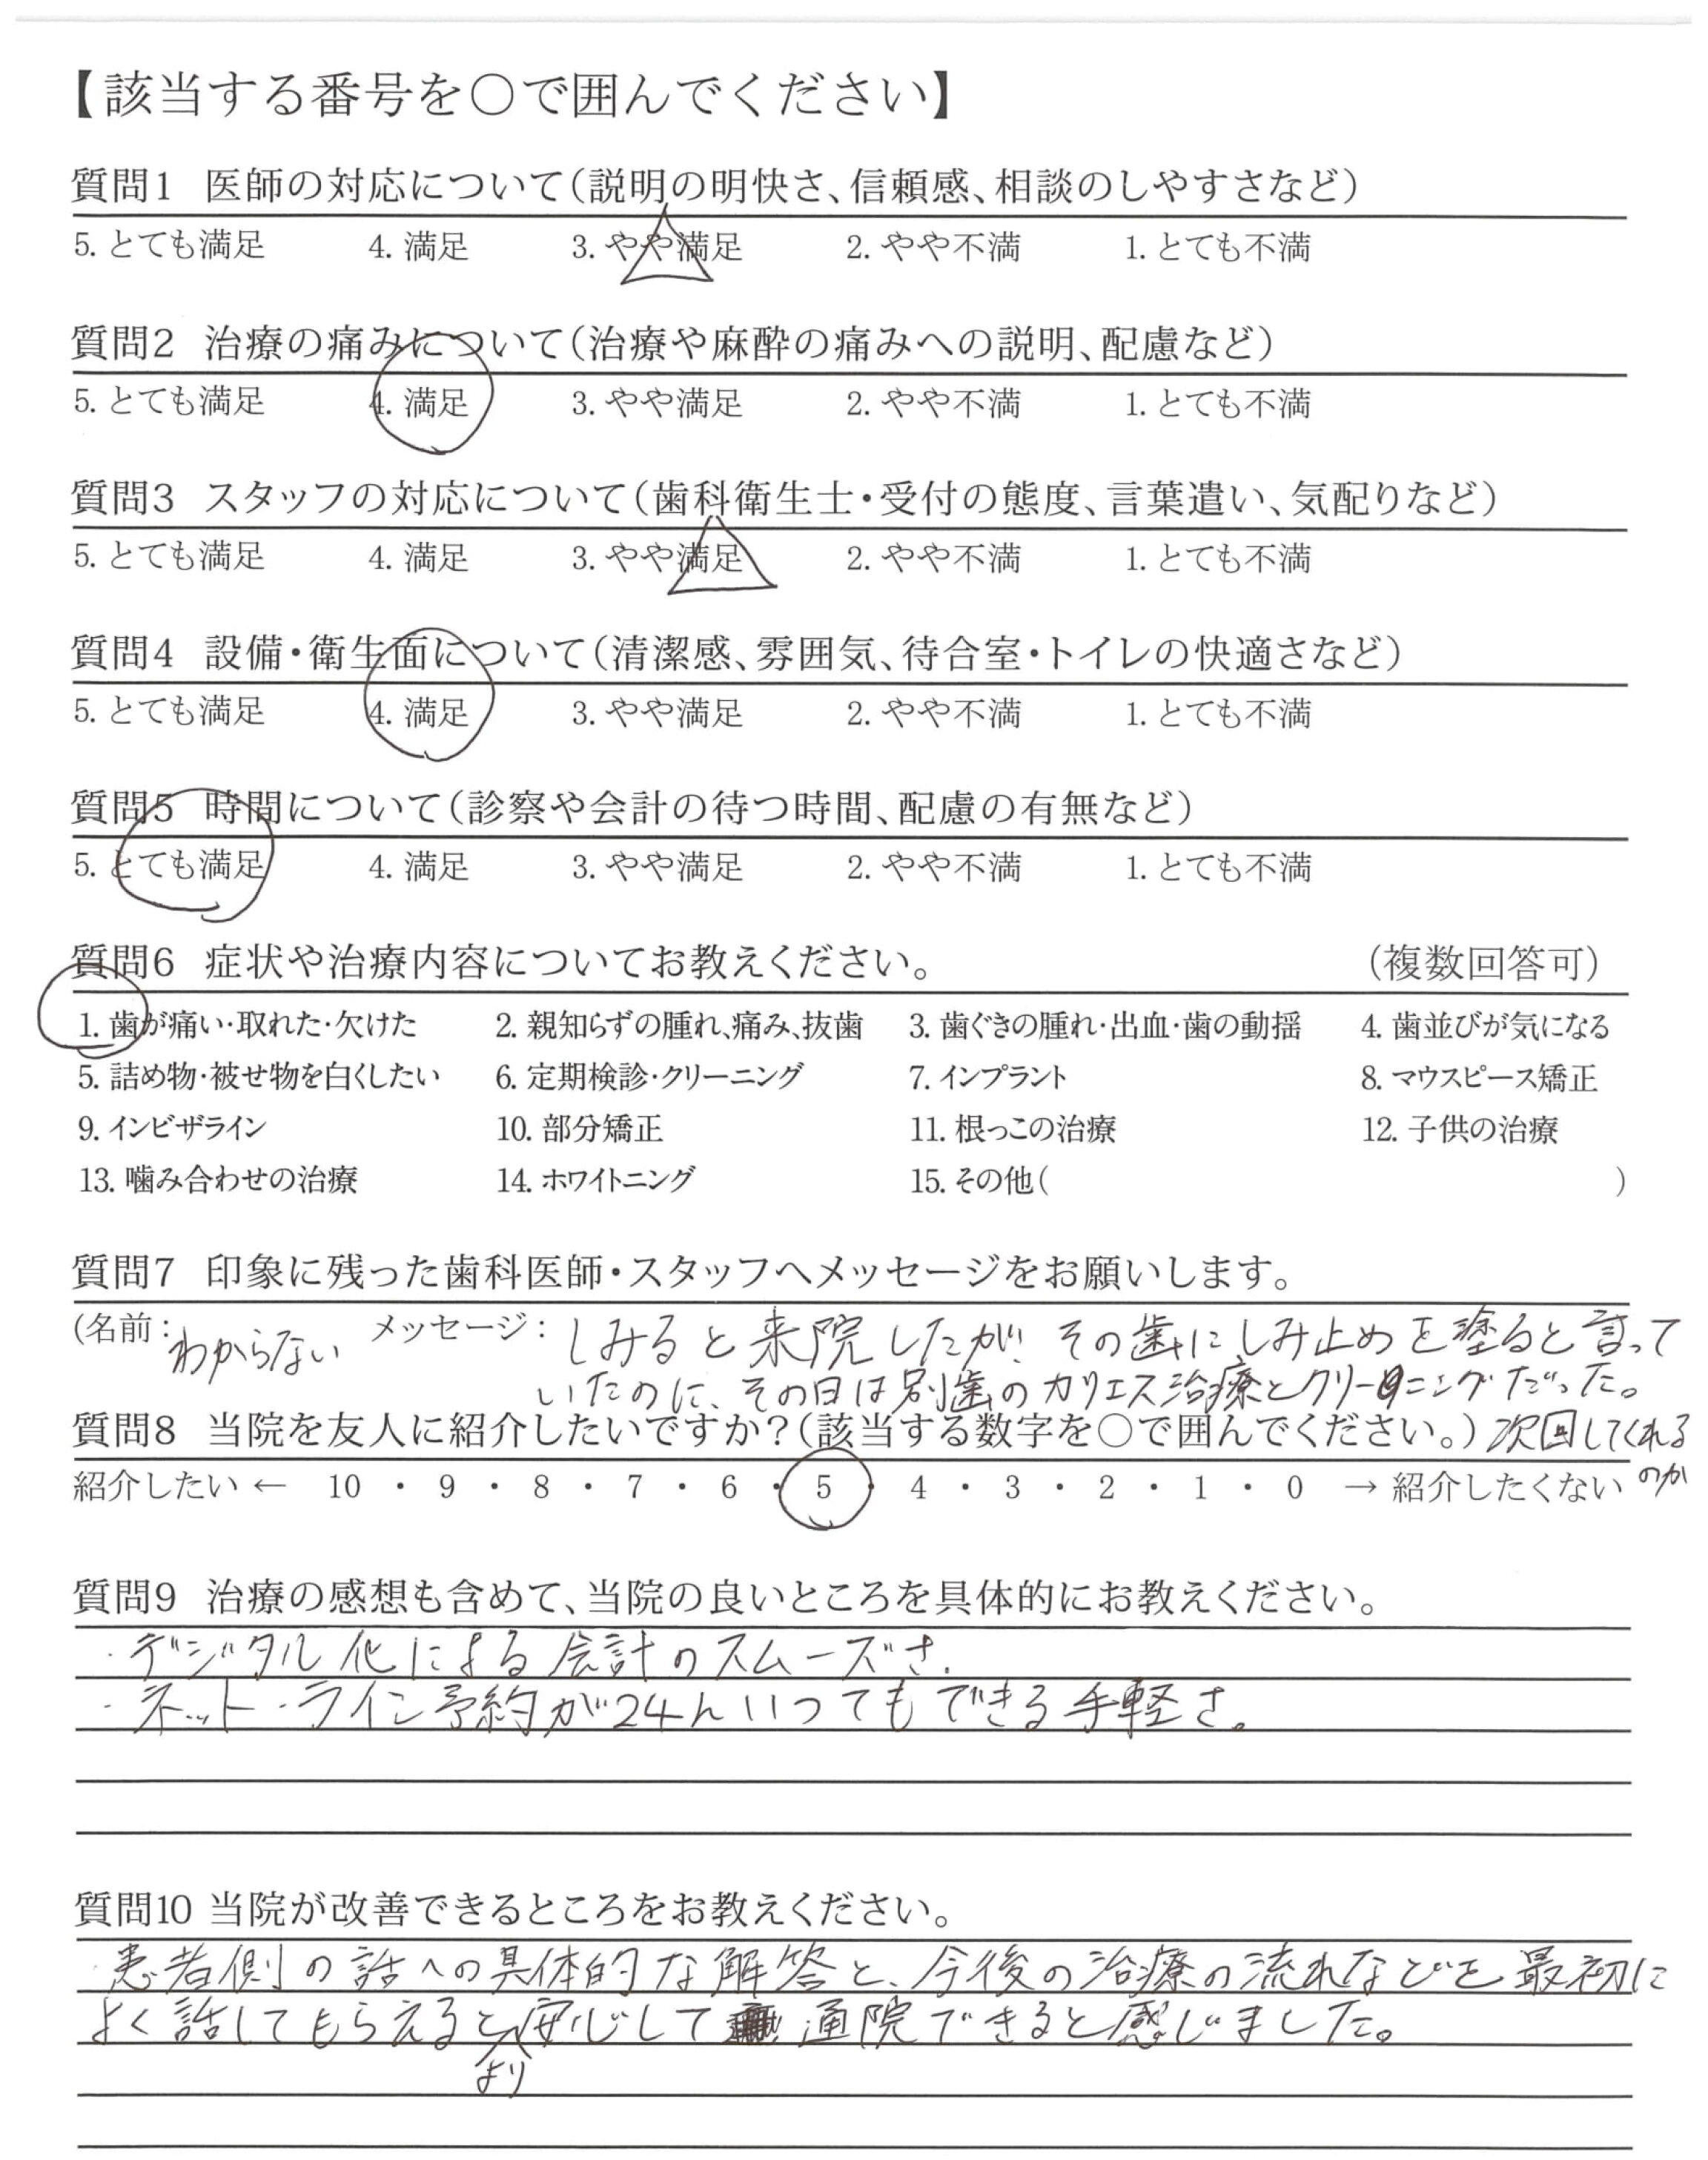 【該当する番号を○で囲んでください】
質問1 医師の対応について(説明の明快さ、信頼感、相談のしやすさなど)
5. とても満足 4. 満足 3. やや満足 2. やや不満 1. とても不満
質問2 治療の痛みについて(治療や麻酔の痛みへの説明、配慮など)
5. とても満足 4. 満足 3. やや満足 2. やや不満 1. とても不満
質問3 スタッフの対応について(歯科衛生士・受付の態度、言葉遣い、気配りなど)
5. とても満足 4. 満足 3. やや満足 2. やや不満 1. とても不満
質問4 設備・衛生面について(清潔感、雰囲気、待合室・トイレの快適さなど)
5. とても満足 4. 満足 3. やや満足 2. やや不満 1. とても不満
質問5 時間について(診察や会計の待つ時間、配慮の有無など)
5. とても満足 4. 満足 3. やや満足 2. やや不満 1. とても不満
質問6 症状や治療内容についてお教えください。 (複数回答可)
1. 歯が痛い・取れた・欠けた 2. 親知らずの腫れ、痛み、抜歯 3. 歯ぐきの腫れ・出血・歯の動揺 4. 歯並びが気になる
5. 詰め物・被せ物を白くしたい 6. 定期検診・クリーニング 7. インプラント 8. マウスピース矯正
9. インビザライン 10. 部分矯正 11. 根っこの治療 12. 子供の治療
13. 噛み合わせの治療 14. ホワイトニング 15. その他( )
質問7 印象に残った歯科医師・スタッフへメッセージをお願いします。
(名前: わからない メッセージ: しみると来院したが、その歯にしみ止めを塗ると言って
いたのに、その日は別歯のカリエス治療とクリーニングだった。
質問8 当院を友人に紹介したいですか?(該当する数字を○で囲んでください。) 次回してくれる
紹介したい ← 10 ・ 9 ・ 8 ・ 7 ・ 6 ・ 5 ・ 4 ・ 3 ・ 2 ・ 1 ・ 0 → 紹介したくない のか
質問9 治療の感想も含めて、当院の良いところを具体的にお教えください。
・デジタル化による会計のスムーズさ.
・ネット・ライン予約が24hいつでもできる手軽さ。
質問10 当院が改善できるところをお教えください。
・患者側の話への具体的な解答と、今後の治療の流れなどを最初に
よく話してもらえると安心して 通院できると感じました。
より